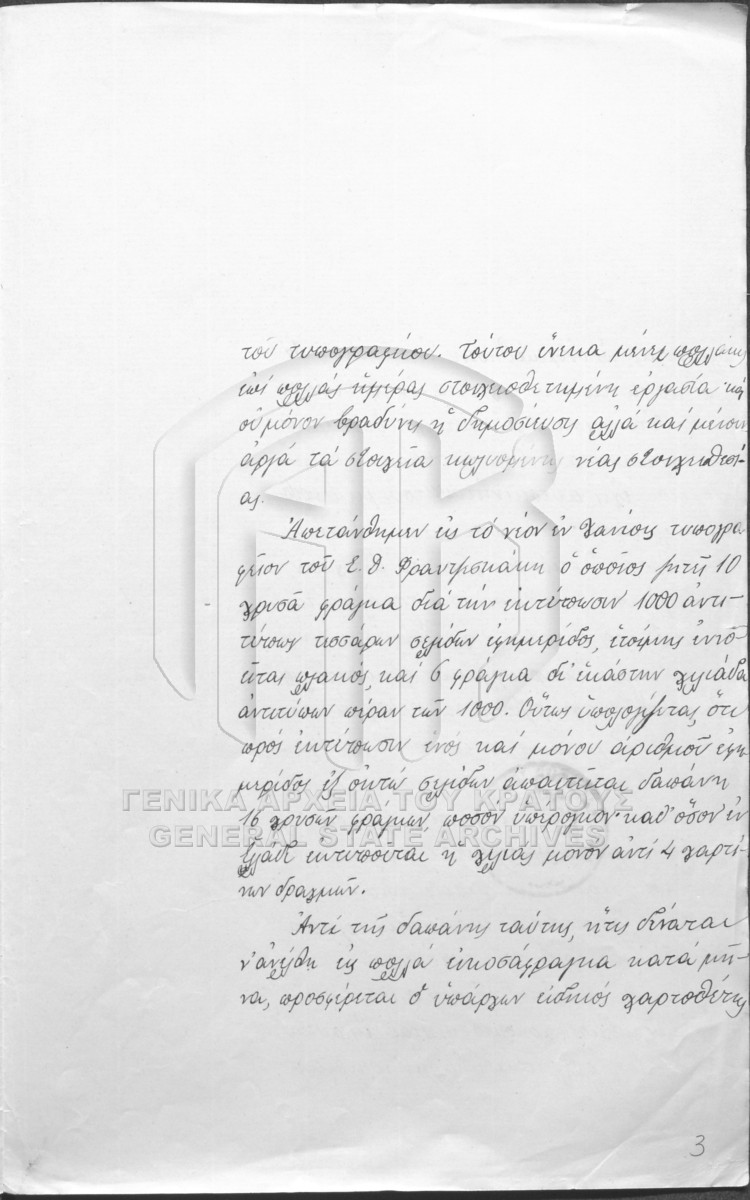 τοῦ τυπογραφείου. Τούτου ἕνεκα μένει πολλάκις
ἐπί πολλάς ἡμέρας στοιχειοθετημένη ἐργασία καί
οὐ μόνον βραδύνει ἡ δημοσίευσις ἀλλά καί μένουν
ἀργά τά στοιχεῖα νέας στοιχειοθεσί-
ας.
Ἀπετάνθημεν εἰς τό νέον ἐν Χανίοις τυπογρα-
φεῖον τοῦ Ε. Δ. Φραντζεσκάκη ὁ ὁποῖος ζητεῖ 10
χρυσᾶ φράγκα διά τήν ἐκτύπωσιν 1000 ἀντι-
τύπων τεσσάρων σελίδων ἐφημερίδος, ἑτοίμης ἐννο-
εῖται πλακός, καί 6 φράγκα δι' ἑκάστην χιλιάδα
ἀντιτύπων πέραν τῶν 1000. Οὕτως ὑπολογίζεται ὅτι
πρός ἐκτύπωσιν ἑνός καί μόνου ἀριθμοῦ ἐφη-
μερίδος ἐξ ὀκτώ σελίδων ἀπαιτεῖται δαπάνη
16 χρυσῶν φράγκων, ποσόν ὑπέρογκον καθ' ὅσον ἐν
Ἑλλάδι ἐκτυποῦται ἡ χιλιάς μόνον ἀντί 4 χαρτί-
νων δραχμῶν.
Ἀντί τῆς δαπάνης ταύτης, ἥτις δύναται
ν' ἀνέλθῃ εἰς πολλά εἰκοσάφραγκα κατά μῆ-
να, προσφέρεται ὁ ὑπάρχων εἰδικός χαρτοθέτης
ΓΕΝΙΚΑ ΑΡΧΕΙΑ ΤΟΥ ΚΡΑΤΟΥΣ
GENERAL STATE ARCHIVES
3